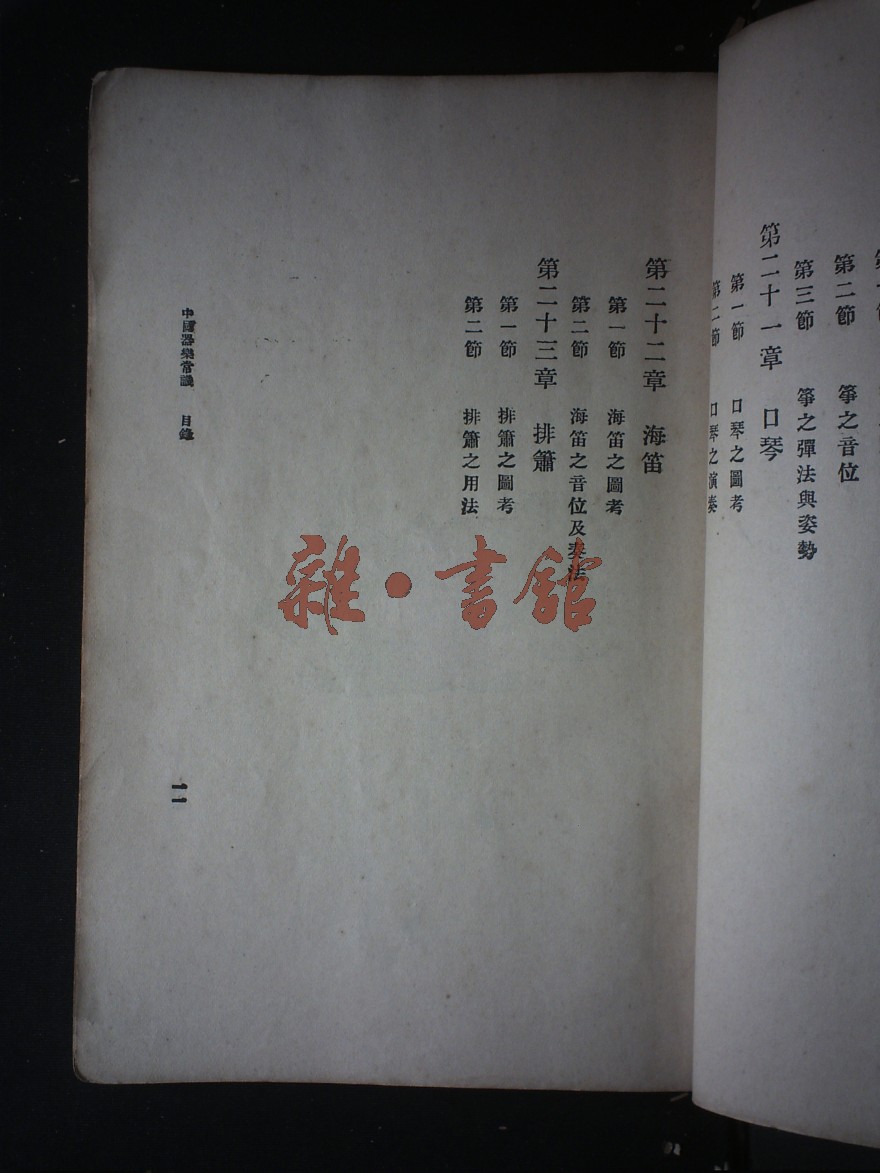 第二節 箏之音位
第三節 箏之彈法與姿勢
第二十一章 口琴
第一節 口琴之圖考
第二節 口琴之演奏
第二十二章 海笛
第一節 海笛之圖考
第二節 海笛之音位及奏法
第二十三章 排簫
第一節 排簫之圖考
第二節 排簫之用法
中國器樂常識 目錄
一一
雜·書館